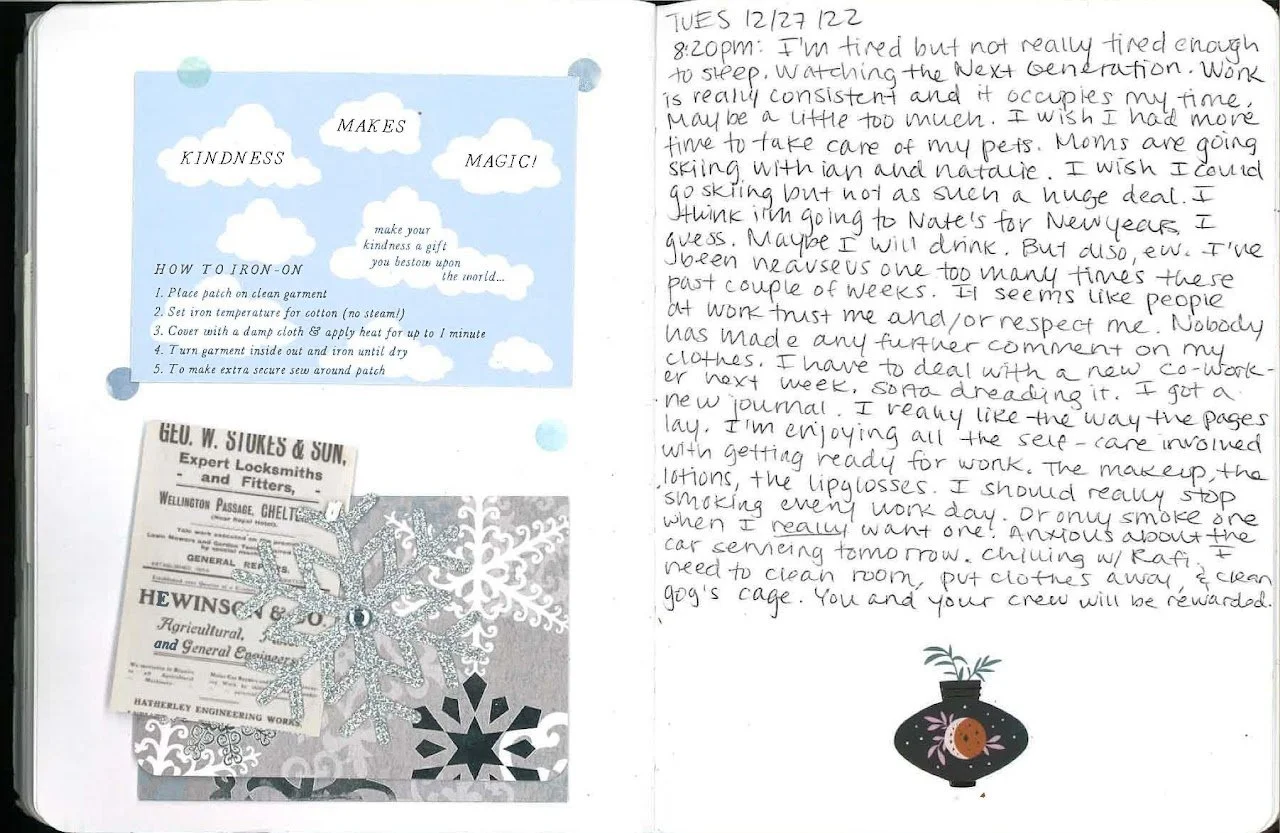 KINDNESS
MAKES
MAGIC!
make your
kindness a gift
you bestow upon
the world...
HOW TO IRON-ON
1. Place patch on clean garment
2. Set iron temperature for cotton (no steam!)
3. Cover with a damp cloth & apply heat for up to 1 minute
4. Turn garment inside out and iron until dry
5. To make extra secure sew around patch
GEO. W. STOKES & SON,
Expert Locksmiths
and Fitters,
WELLINGTON PASSAGE, CHELT
(Near Royal Hotel).
Lawn Mowers and Garden
GENERAL REPAIRS.
HEWINSON & CO.
Agricultural,
and General Engineers
HATHERLEY ENGINEERING WORKS
TUES 12/27/22
8:20pm: I'm tired but not really tired enough
to sleep. Watching the Next Generation. Work
is really consistent and it occupies my time.
Maybe a little too much. I wish I had more
time to take care of my pets. Moms are going
skiing with ian and natalie. I wish I could
go skiing but not as such a huge deal. I
think i'm going to Nate's for New years, I
guess. Maybe I will drink. But also, ew. I've
been neauseus one too many times these
past couple of weeks. It seems like people
at work trust me and/or respect me. Nobody
has made any further comment on my
clothes. I have to deal with a new co-work-
er next week. Sorta dreading it. I got a
new journal. I really like the way the pages
lay. I'm enjoying all the self-care involved
with getting ready for work. The makeup, the
lotions, the lipglosses. I should really stop
smoking every work day. Or only smoke one
when I really want one. Anxious about the
car servicing tomorrow. Chilling w/ Rafi. I
need to clean room, put clothes away, & clean
gog's cage. You and your crew will be rewarded.